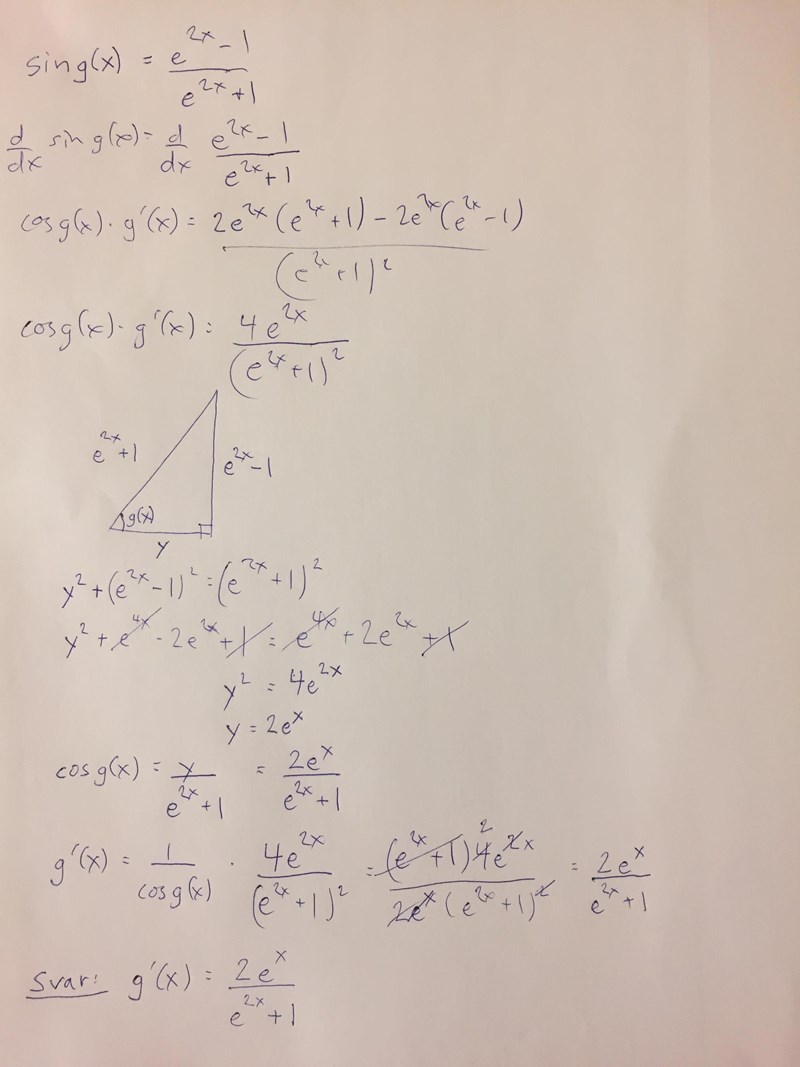 sin g(x) = (e^{2x} - 1)/(e^{2x} + 1)
d/dx sin g(x) = d/dx (e^{2x} - 1)/(e^{2x} + 1)
cos g(x) · g'(x) = (2e^{2x}(e^{2x} + 1) - 2e^{2x}(e^{2x} - 1))/(e^{2x} + 1)^2
cos g(x) · g'(x) = 4e^{2x}/(e^{2x} + 1)^2
e^{2x} + 1
e^{2x} - 1
g(x)
y
y^2 + (e^{2x} - 1)^2 = (e^{2x} + 1)^2
y^2 + e^{4x} - 2e^{2x} + 1 = e^{4x} + 2e^{2x} + 1
y^2 = 4e^{2x}
y = 2e^x
cos g(x) = y/(e^{2x} + 1) = 2e^x/(e^{2x} + 1)
g'(x) = 1/(cos g(x)) · 4e^{2x}/(e^{2x} + 1)^2 = ((e^{2x} + 1) 4 2 e^{2x})/(2e^x (e^{2x} + 1)^2) = 2e^x/(e^{2x} + 1)
Svar: g'(x) = 2e^x/(e^{2x} + 1)